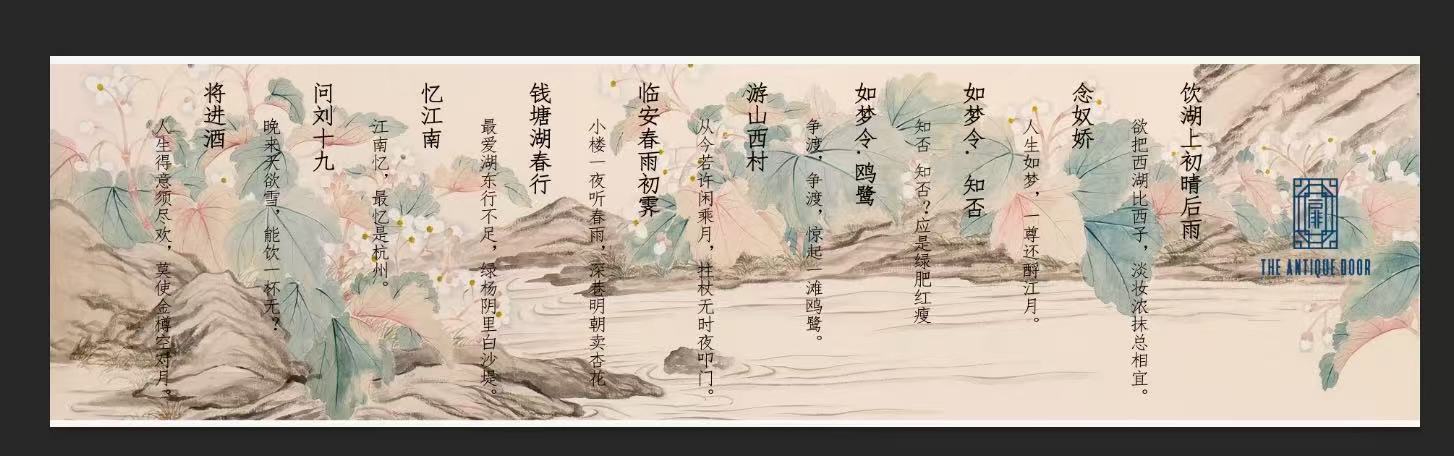 扉
THE ANTIQUE DOOR
饮湖上初晴后雨
欲把西湖比西子，淡妆浓抹总相宜。
念奴娇
人生如梦，一尊还酹江月。
如梦令·知否
知否 知否？应是绿肥红瘦
如梦令·鸥鹭
争渡，争渡，惊起一滩鸥鹭。
游山西村
从今若许闲乘月，拄杖无时夜叩门。
临安春雨初霁
小楼一夜听春雨，深巷明朝卖杏花
钱塘湖春行
最爱湖东行不足，绿杨阴里白沙堤。
忆江南
江南忆，最忆是杭州。
问刘十九
晚来天欲雪，能饮一杯无？
将进酒
人生得意须尽欢，莫使金樽空对月。